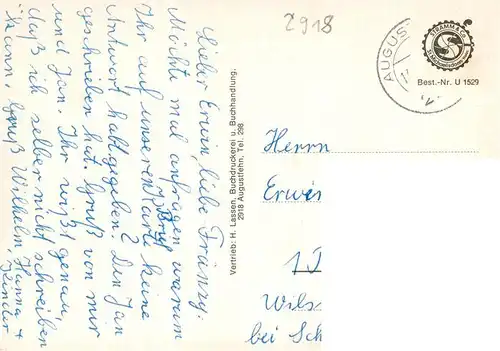 2918
STRAMM & Co.
AUGUS
Best.-Nr. U 1529
Lieber Erwin, liebe Fränzy.
Möchte mal anfragen warum
Ihr auf unseren Brief
Karte keine
Antwort habt gegeben? Den Jan
geschrieben hat. Gruß von mir
und Jan. Ihr wißt genau,
daß ich selber nicht schreiben
kann, Gruß Wilhelm, Hanna +
Kinder
Vertrieb: H. Lassen, Buchdruckerei u. Buchhandlung,
2918 Augustfehn, Tel. 298
Herrn
Erwi
1
Wils
bei Sch